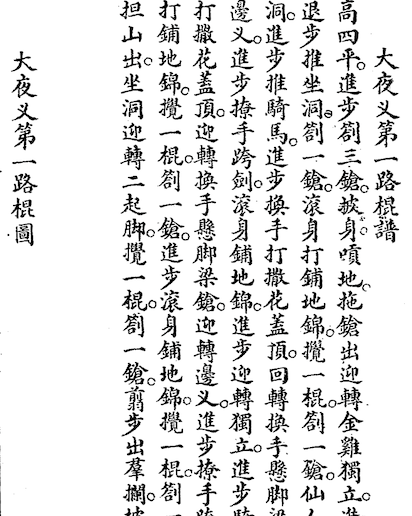 大夜叉第一路棍譜
高四平。進步劄三鎗。披身噴地。拖鎗出迎轉金雞獨立。進
退步推坐洞。劄一鎗。滾身打鋪地錦。攪一棍。劄一鎗。仙人
洞。進步推騎馬。進步換手打撒花蓋頂。回轉換手懸脚梁
邊叉。進步撩手跨劍。滾身鋪地錦。進步迎轉獨立。進步騎
打撒花蓋頂。迎轉換手懸脚梁鎗。迎轉邊叉。進步撩手跨
打鋪地錦。攪一棍。劄一鎗。進步滾身鋪地錦。攪一棍。劄一
担山出。坐洞迎轉二起脚。攪一棍。劄一鎗。翦步出羣攔。
大夜叉第一路棍圖